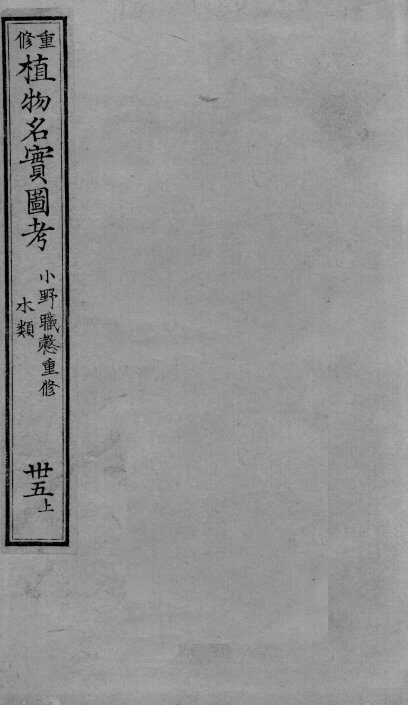 重修
植物名實圖考
小野職愨重修
木類
卅五上